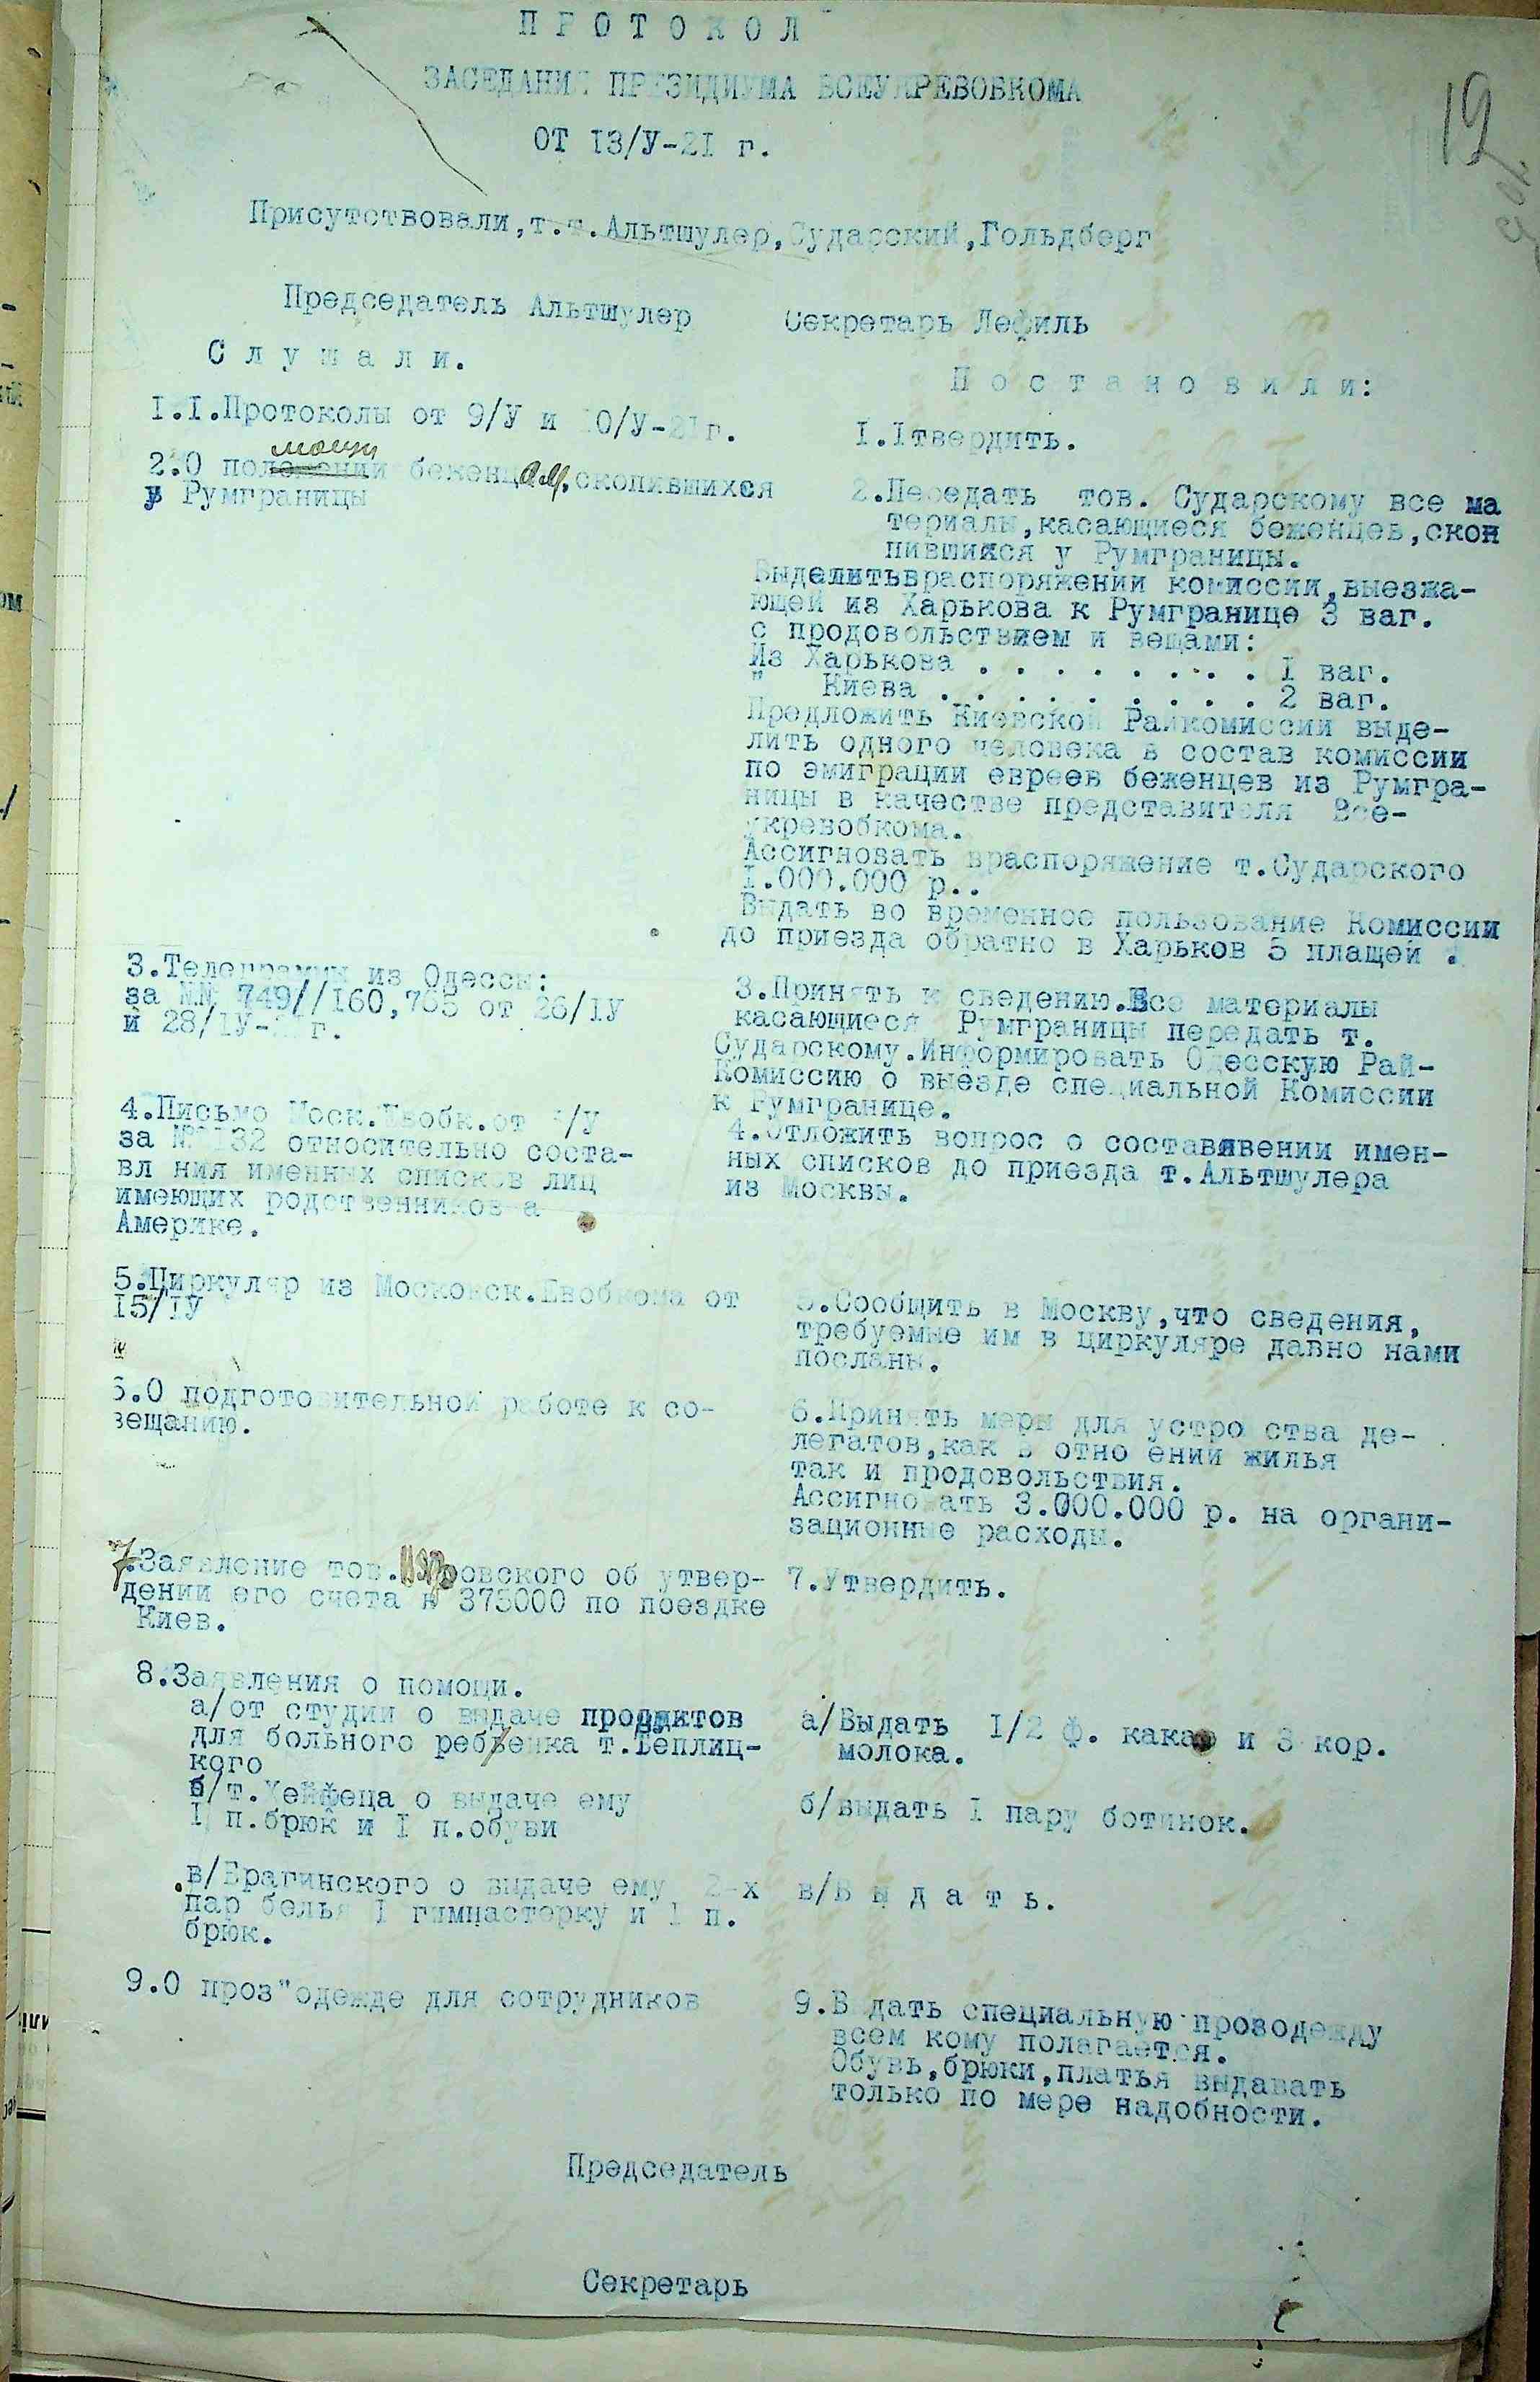 ПРОТОКОЛ
ЗАСЕДАНИЯ ПРЕЗИДИУМА ВСЕУКРЕВОБКОМА
ОТ I3/У-2I г.
I2
Присутствовали,т.т.Альтшулер,Сударский,Гольдберг
Председатель Альтшулер Секретарь Лефиль
Слушали.
Постановили:
I.I.Протоколы от 9/У и I0/У-2Iг.
I.Iтвердить.
мощи
2.О положении беженцам,скопившихся
у Румграницы
2.Передать тов. Сударскому все ма
териалы,касающиеся беженцев,скоп
пившихся у Румграницы.
Выделитьвраспоряжении комиссии,выезжа-
ющей из Харькова к Румгранице 3 ваг.
с продовольствием и вещами:
Из Харькова . . . . . . . . I ваг.
" Киева . . . . . . . . . 2 ваг.
Предложить Киевской Райкомиссии выде-
лить одного человека в состав комиссии
по эмиграции евреев беженцев из Румгра-
ницы в качестве представителя Все-
укревобкома.
Ассигновать враспоряжение т.Сударского
I.000.000 р..
Выдать во временное пользование Комиссии
до приезда обратно в Харьков 5 плащей .
3.Телеграммы из Одессы:
за NN 749//I60,765 от 26/IУ
и 28/IУ-2I г.
3.Принять к сведению.Все материалы
касающиеся Румграницы передать т.
Сударскому.Информировать Одесскую Рай-
Комиссию о выезде специальной Комиссии
к Румгранице.
4.Письмо Моск.Евобк.от /У
за № I32 относительно соста-
вл ния именных списков лиц
имеющих родственников а
Америке.
4.Отложить вопрос о составявении имен-
ных списков до приезда т.Альтшулера
из Москвы.
5.Циркуляр из Московск.Евобкома от
I5/IУ
5.Сообщить в Москву,что сведения,
требуемые им в циркуляре давно нами
посланы.
6.О подготовительной работе к со-
вещанию.
6.Принять меры для устро ства де-
легатов,как в отно ении жилья
так и продовольствия.
Ассигновать 3.000.000 р. на органи-
зационные расходы.
7.Заявление тов. об утвер-
дении его счета в 375000 по поездке
Киев.
7.Утвердить.
8.Заявления о помощи.
а/от студии о выдаче продуктов
для больного ребенка т.Теплиц-
кого
а/Выдать I/2 ф. какао и 3 кор.
молока.
б/т.Хейфеца о выдаче ему
I п.брюк и I п.обуви
б/выдать I пару ботинок.
в/Брагинского о выдаче ему 2-х
пар белья I гимнастерку и I п.
брюк.
в/В ы д а т ь.
9.О проз"одежде для сотрудников
9.В дать специальную прозодежду
всем кому полагается.
Обувь,брюки,платья выдавать
только по мере надобности.
Председатель
Секретарь